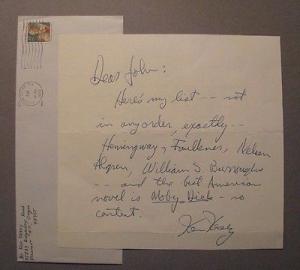 Dear John:
Here's my list -- not
in any order, exactly --
Hemingway, Faulkner, Nelson
Algren, William S. Burroughs
-- and the best American
novel is Moby Dick - no
contest.
Ken Kesey